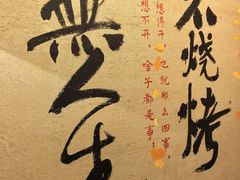 不烧烤
想得开，也就那么回事；
想不开，啥子都是事；
無人生